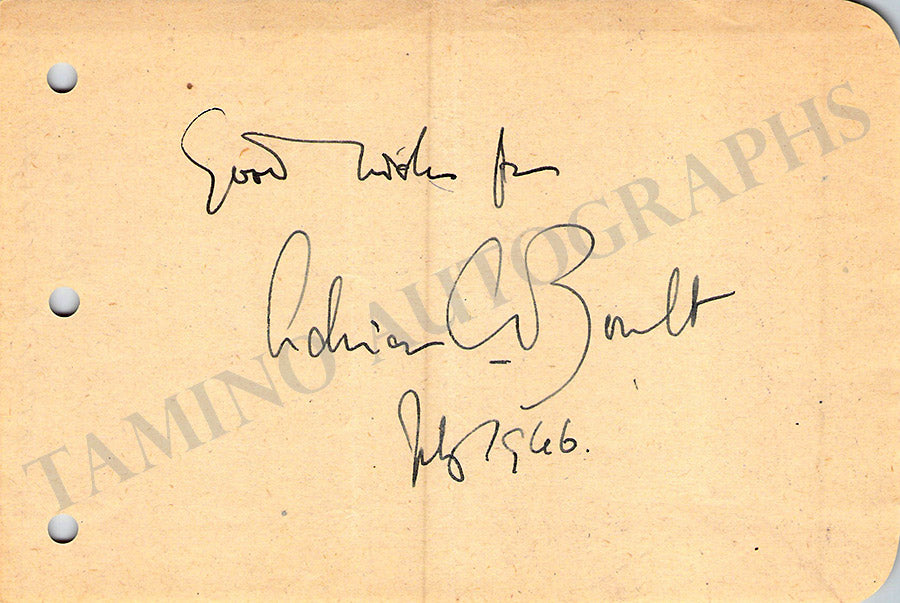 Good wishes from
Adrian C Boult
July 1946.
TAMINO AUTOGRAPHS